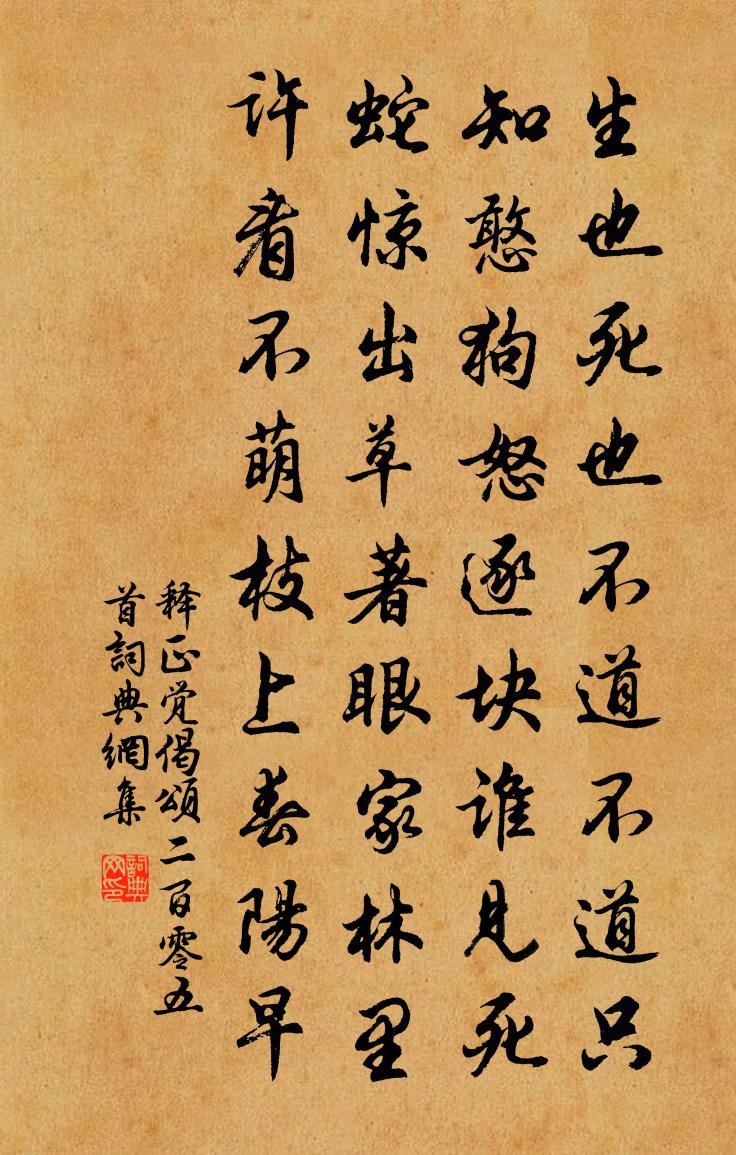 生也死也不道不道只
知憨狗怒逐块谁见死
蛇惊出草著眼家林里
许看不萌枝上春陽早
释正觉偈頌二百零五
首詞典網集
詞典网印